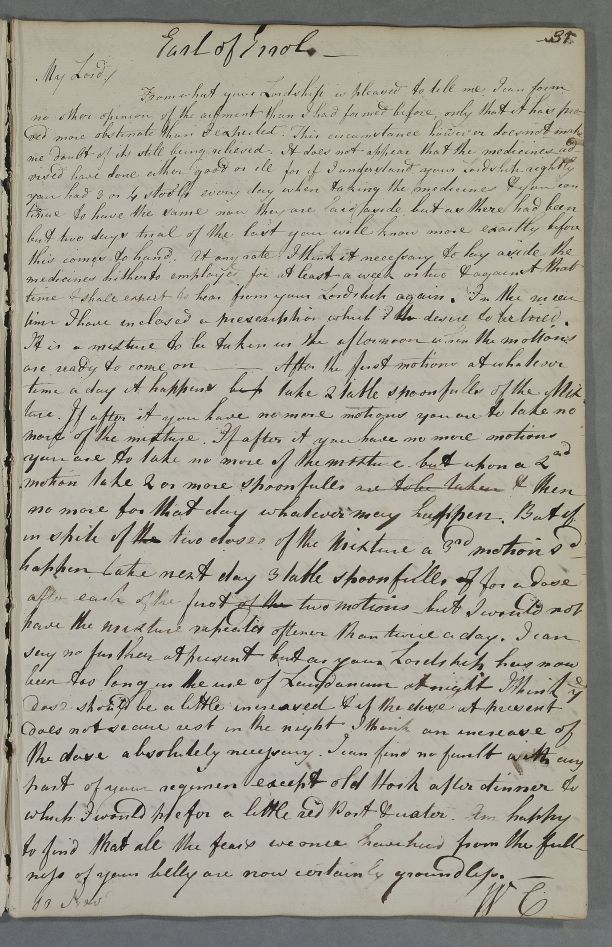 31
Earl of Errol. —
My Lord/
From what your Lordship is pleased to tell me, I can form
no other opinion of the ailment than I had formed before, only that it has pro
ved more obstinate than I expected. This circumstance however does not make
me doubt of its still being relieved. It does not appear that the medicines ad
vised have done either good or ill for if I understand your Lordship rightly
you had 3 or 4 stools every day when taking the medicines & you con
tinue to have the same now they are laid aside but as there had been
but two days trial of the last you will know more exactly before
this comes to hand. At any rate I think it necessary to lay aside the
medicines hitherto employed for at least a week or two & against that
time I shall expect to hear from your Lordship again. In the mean
time I have inclosed a prescription which I desire to be tried.
It is a mixture to be taken in the afternoon when the motions
are ready to come on —— After the first motions at whatever
time a day it happens take 2 table spoonfulls of the Mix
ture. If after it you have no more motions you are to take no
more of the mixture. If after it you have no more motions
you are to take no more of the mixture. but upon a 2nd
motion take 2 or more spoonfulls are to be taken & then
no more for that day whatever may happen. But if
in spite of the two doses of the Mixture a 3rd motion sd
happen take next day 3 table spoonfulls of for a dose
after each of the first of the two motions but I would not
have the mixture repeated oftener than twice a day. I can
say no further at present but as your Lordship has now
been too long in the use of Laudanum at night I think ye
dose should be a little increased & if the dose at present
does not secure rest in the night I think an increase of
the dose absolutely necessary. I can find no fault with any
part of your regimen except old Hock after dinner to
which I would prefer a little red Port & water. Im happy
to find that all the fears we once have had from the full-
ness of your belly are now certainly groundless.
W C